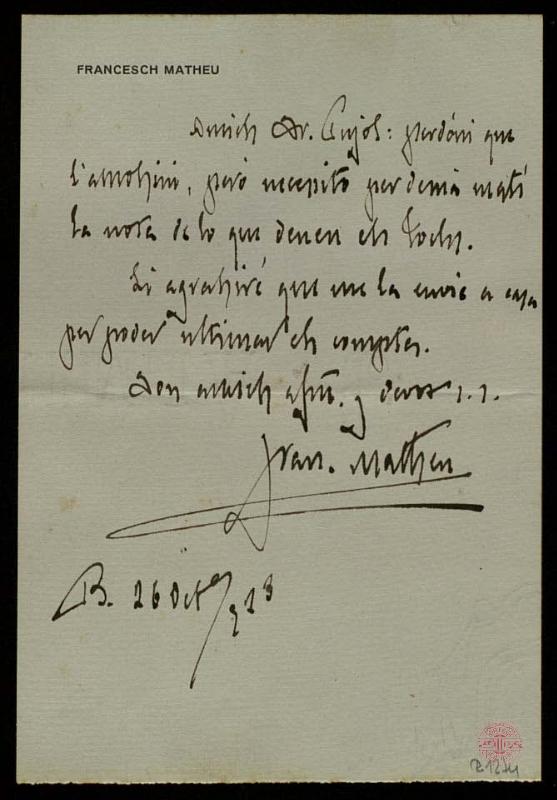 FRANCESCH MATHEU
Amich Dr. Pujol: perdóni que
l'amohini, peró necesito per demá matí
la nota de lo que deuen els Jochs.
Li agrahiré que me la envie a casa
per poder ultimar els comptes.
Son amich afm. y devot s.s.
Fran. Matheu
B. 26 Oct. 923